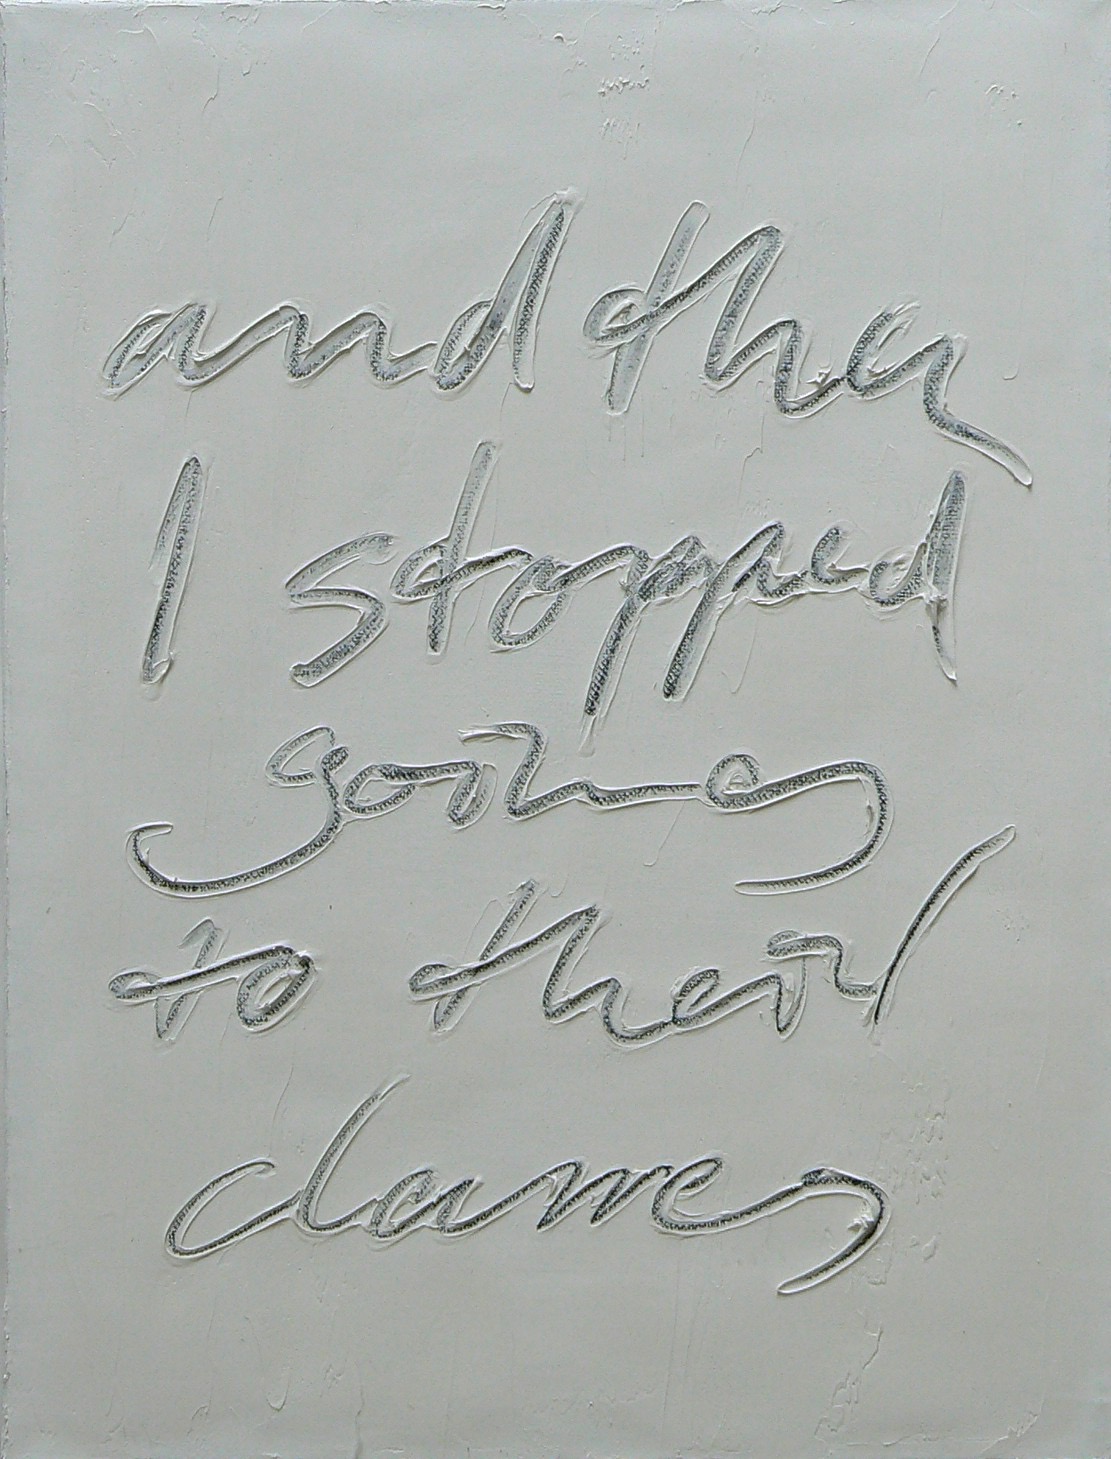 and then
I stopped
going
to their
classes